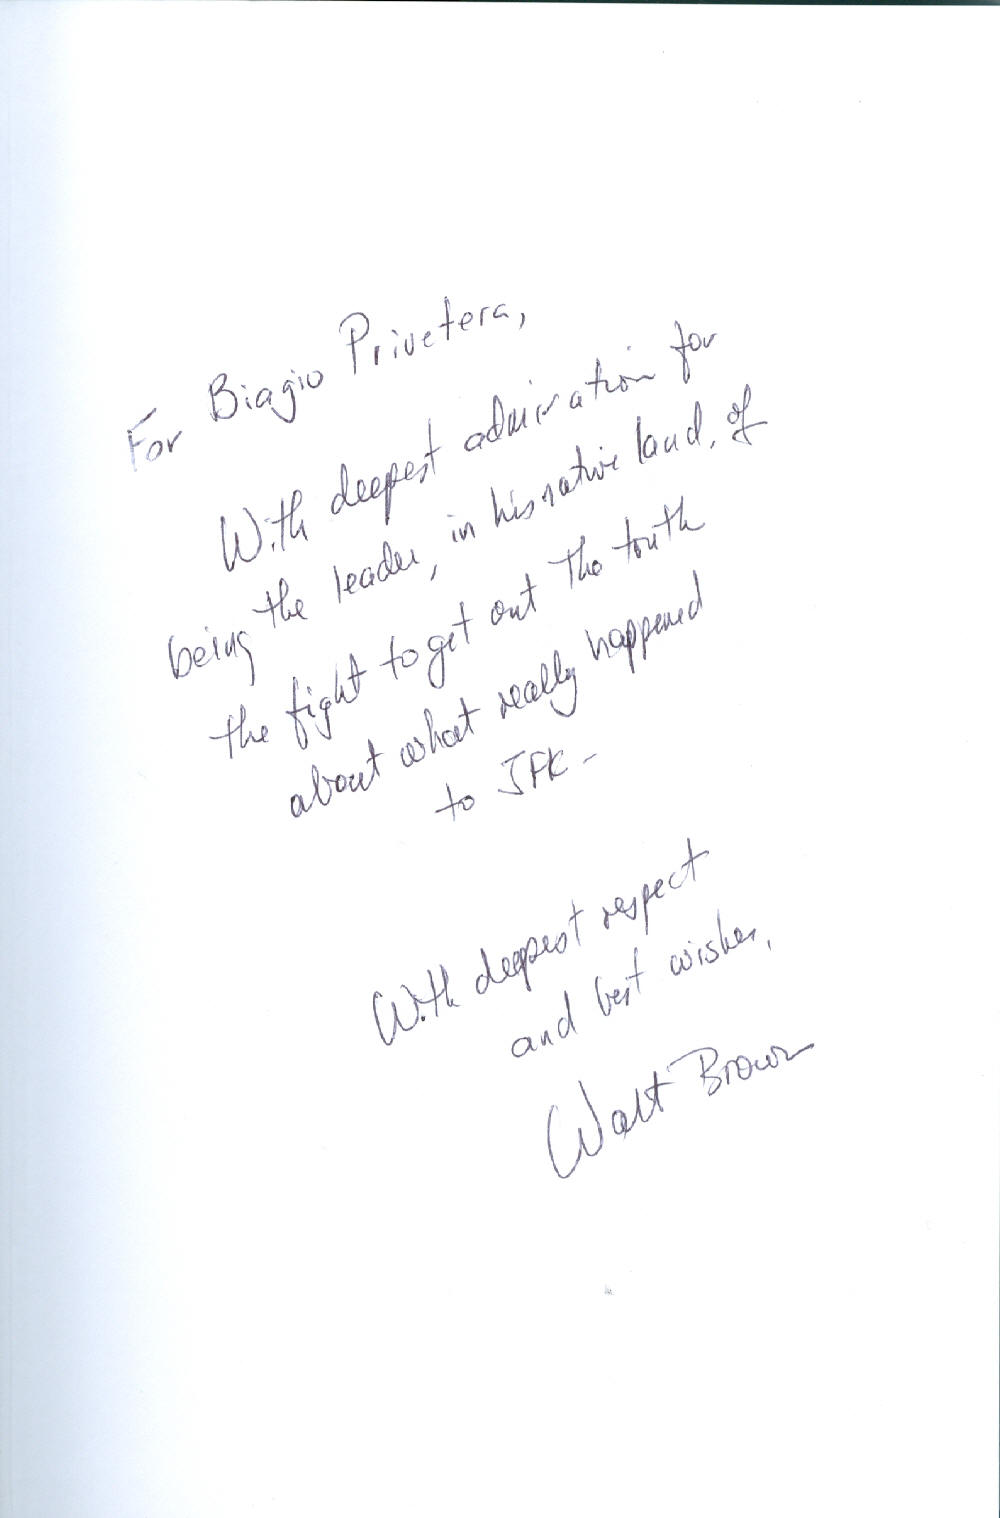 For Biagio Privetera,
With deepest admiration for
being the leader, in his native land, of
the fight to get out the truth
about what really happened
to JFK -
With deepest respect
and best wishes,
Walt Brown